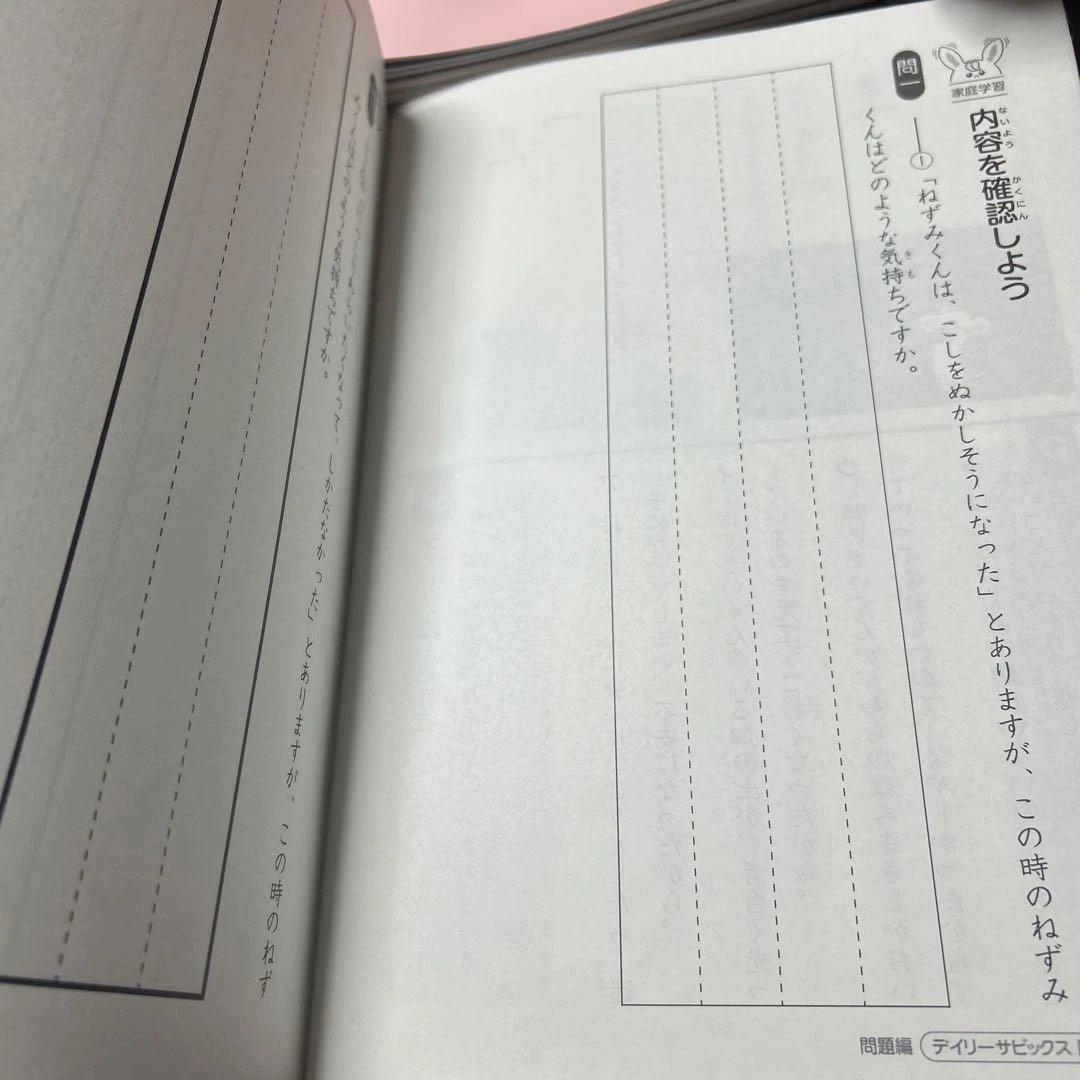 家庭学習
内容を確認しよう
ないよう
かくにん
問一
――①「ねずみくんは、こしをぬかしそうになった」とありますが、この時のねずみ
くんはどのような気持ちですか。
きも
しかたなかった」とありますが、この時のねず
気持ちですか。
問題編
デイリーサピックス